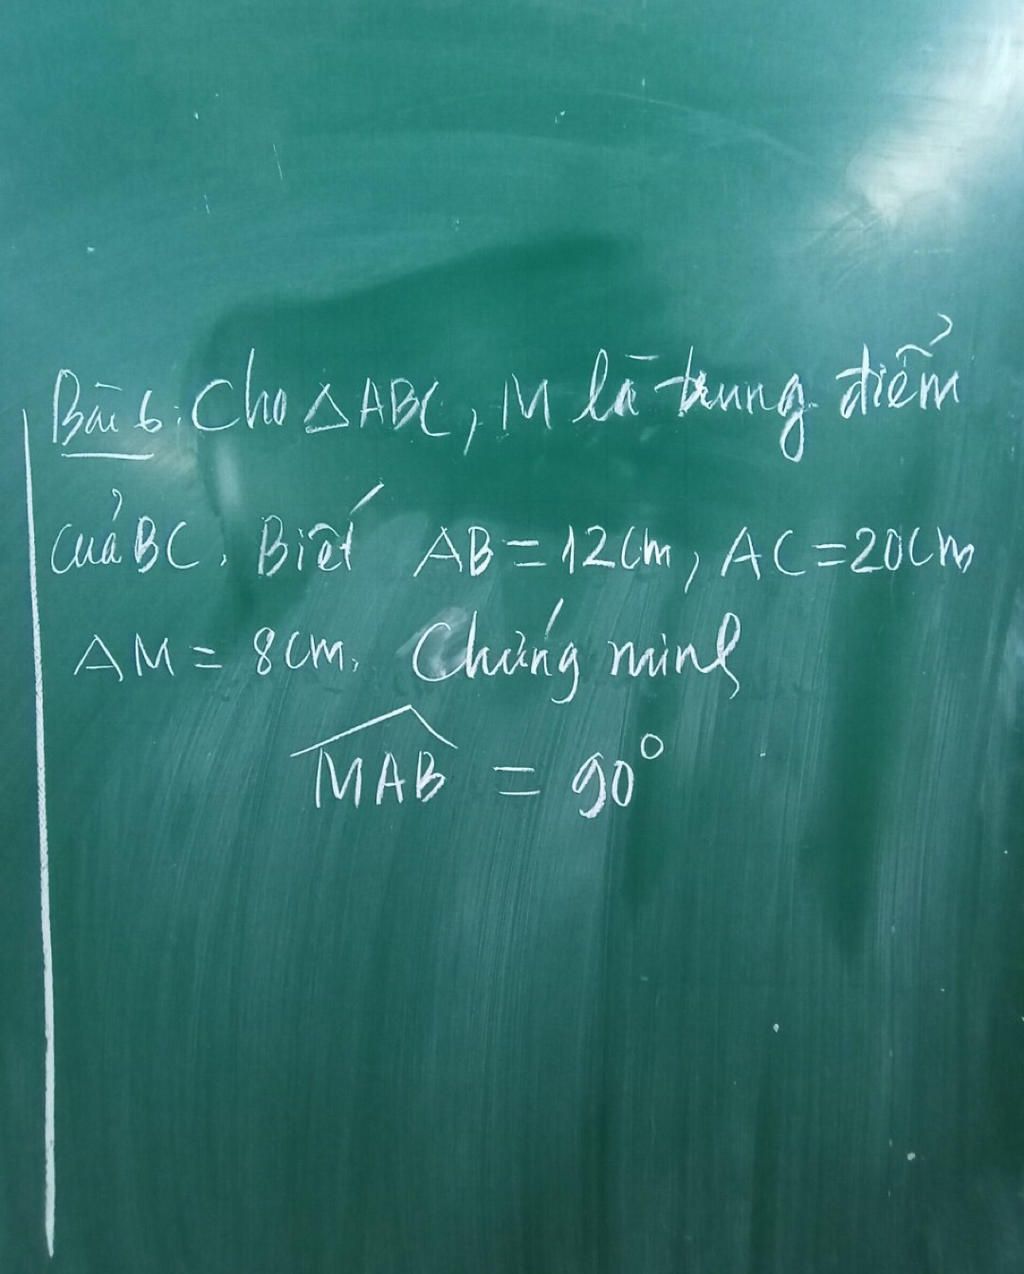 Bài 6: Cho △ABC, M là trung điểm
của BC. Biết AB = 12cm, AC = 20cm
AM = 8cm. Chứng minh
$\widehat{MAB}$ = 90°